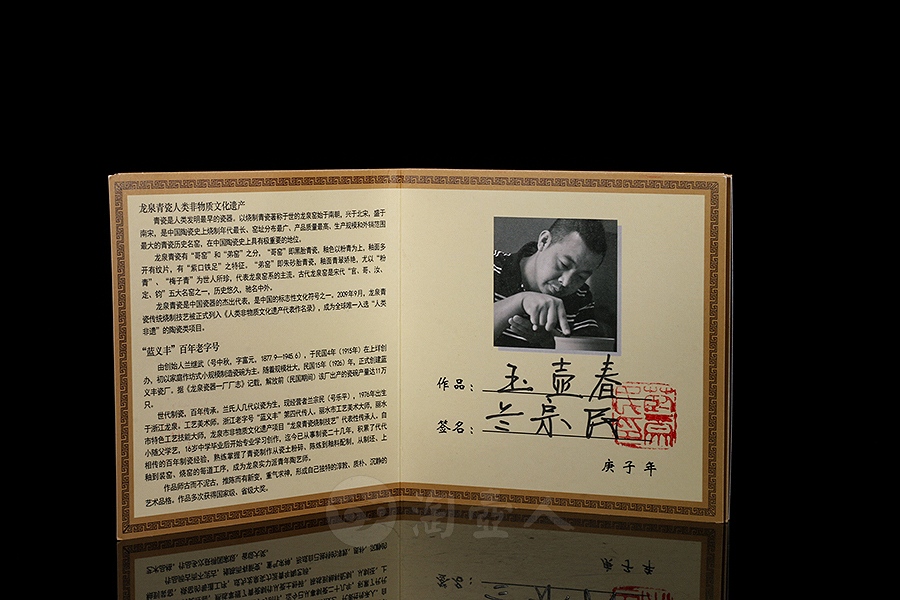 龙泉青瓷人类非物质文化遗产
青瓷是人类发明最早的瓷器。以烧制青瓷著称于世的龙泉窑始于南朝,兴于北宋,盛于
南宋,是中国陶瓷史上烧制年代最长、窑址分布最广、产品质量最高、生产规模和外销范围
最大的青瓷历史名窑,在中国陶瓷史上具有极重要的地位。
龙泉青瓷有“哥窑”和“弟窑”之分,“哥窑”即黑胎青瓷,釉色以粉青为上,釉面多
开有纹片,有“紫口铁足”之特征。“弟窑”即朱砂胎青瓷,釉面青翠娇艳,尤以“粉
青”、“梅子青”为世人所珍,代表龙泉窑系的主流。古代龙泉窑是宋代“官、哥、汝、
定、钧”五大名窑之一,历史悠久,驰名中外。
龙泉青瓷是中国瓷器的杰出代表,是中国的标志性文化符号之一。2009年9月,龙泉青
瓷传统烧制技艺被正式列入《人类非物质文化遗产代表作名录》,成为全球唯一入选“人类
非遗”的陶瓷类项目。
“蓝义丰”百年老字号
由创始人兰继武(号中秋,字富元,1877.9—1945.6),于民国4年(1915年)在上垟创
办,初以家庭作坊式小规模制造瓷碗为主。随着规模壮大,民国15年(1926)年,正式创建蓝
义丰瓷厂。据《龙泉瓷器一厂厂志》记载,解放前(民国期间)该厂出产的瓷碗产量达11万
只。
世代制瓷,百年传承,兰氏人几代以瓷为生。现经营者兰宗民(号乐平),1976年出生
于浙江龙泉。工艺美术师,浙江老字号“蓝义丰”第四代传人,丽水市工艺美术大师,丽水
市特色工艺技能大师,龙泉市非物质文化遗产项目“龙泉青瓷烧制技艺”代表性传承人。自
小随父学艺,16岁中学毕业后开始专业学习创作,迄今已从事制瓷二十几年,积累了代代
相传的百年制瓷经验,熟练掌握了青瓷制作从瓷土粉碎、陈炼到釉料配制,从制坯、上
釉到装窑、烧窑的每道工序,成为龙泉实力派青年陶艺师。
作品师古而不泥古,推陈而有新变,重气求神,形成自己独特的淳敦、质朴、沉静的
艺术品格。作品多次获得国家级、省级大奖。
作品:玉壶春
签名:兰宗民
庚子年
淘壶人